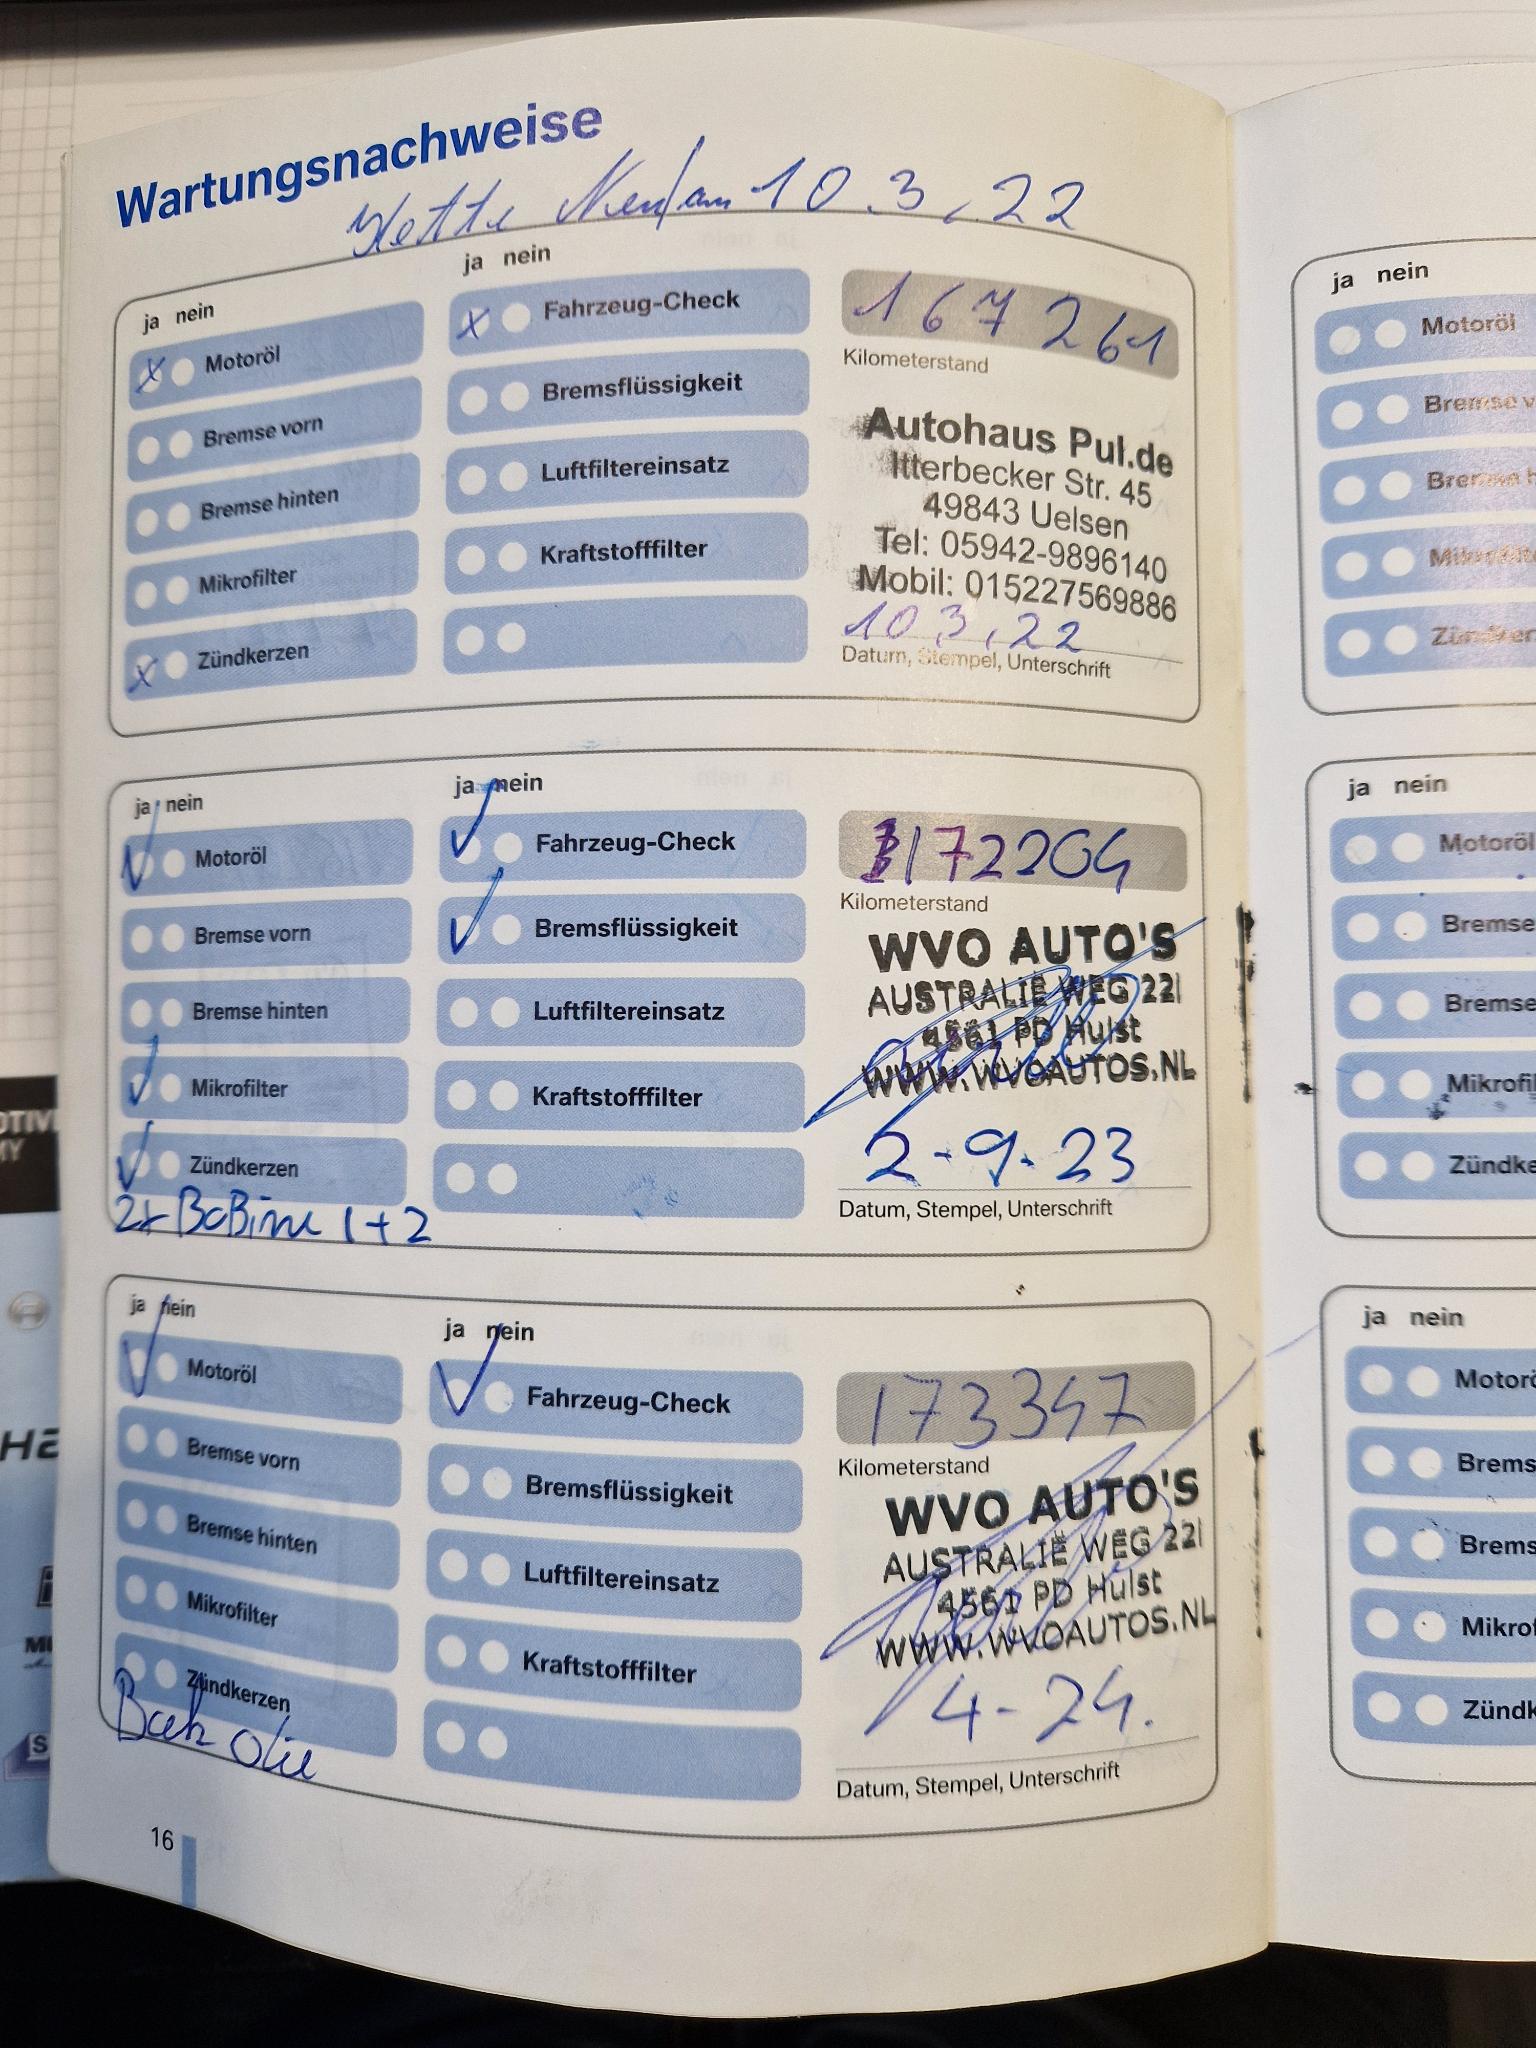 Wartungsnachweise
Kette Neu am 10.3.22
ja nein
Motoröl
Bremse vorn
Bremse hinten
Mikrofilter
Zündkerzen
ja nein
Fahrzeug-Check
Bremsflüssigkeit
Luftfiltereinsatz
Kraftstofffilter
167261
Kilometerstand
Autohaus Pul.de
Itterbecker Str. 45
49843 Uelsen
Tel: 05942-9896140
Mobil: 015227569886
10 3,22
Datum, Stempel, Unterschrift
ja nein
Motoröl
Bremse vorn
Bremse hinten
Mikrofilter
Zündkerzen
2x BoBine 1+2
ja nein
Fahrzeug-Check
Bremsflüssigkeit
Luftfiltereinsatz
Kraftstofffilter
172204
Kilometerstand
WVO AUTO'S
AUSTRALIË WEG 22
4561 PD Hulst
WWW.WVOAUTOS.NL
2-9-23
Datum, Stempel, Unterschrift
ja nein
Motoröl
Bremse vorn
Bremse hinten
Mikrofilter
Zündkerzen
Bak olie
ja nein
Fahrzeug-Check
Bremsflüssigkeit
Luftfiltereinsatz
Kraftstofffilter
173347
Kilometerstand
WVO AUTO'S
AUSTRALIË WEG 22
4561 PD Hulst
WWW.WVOAUTOS.NL
4-24.
Datum, Stempel, Unterschrift
16
ja nein
Motoröl
Bremse v
Bremse h
Mikrofilte
Zündker
ja nein
Motoröl
Bremse
Bremse
Mikrofil
Zündke
ja nein
Motorö
Brems
Brems
Mikrof
Zündk